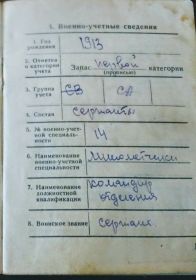 1. Военно-учетные сведения
1. Год рождения
1913
2. Отметка о категории учета
Запас первой категории
(прописью)
3. Группа учета
СВ
СА
4. Состав
сержанты
5. № военно-учетной специальности
14
6. Наименование военно-учетной специальности
минометчики
7. Наименование должностной квалификации
командир
отделения
8. Воинское звание
сержант